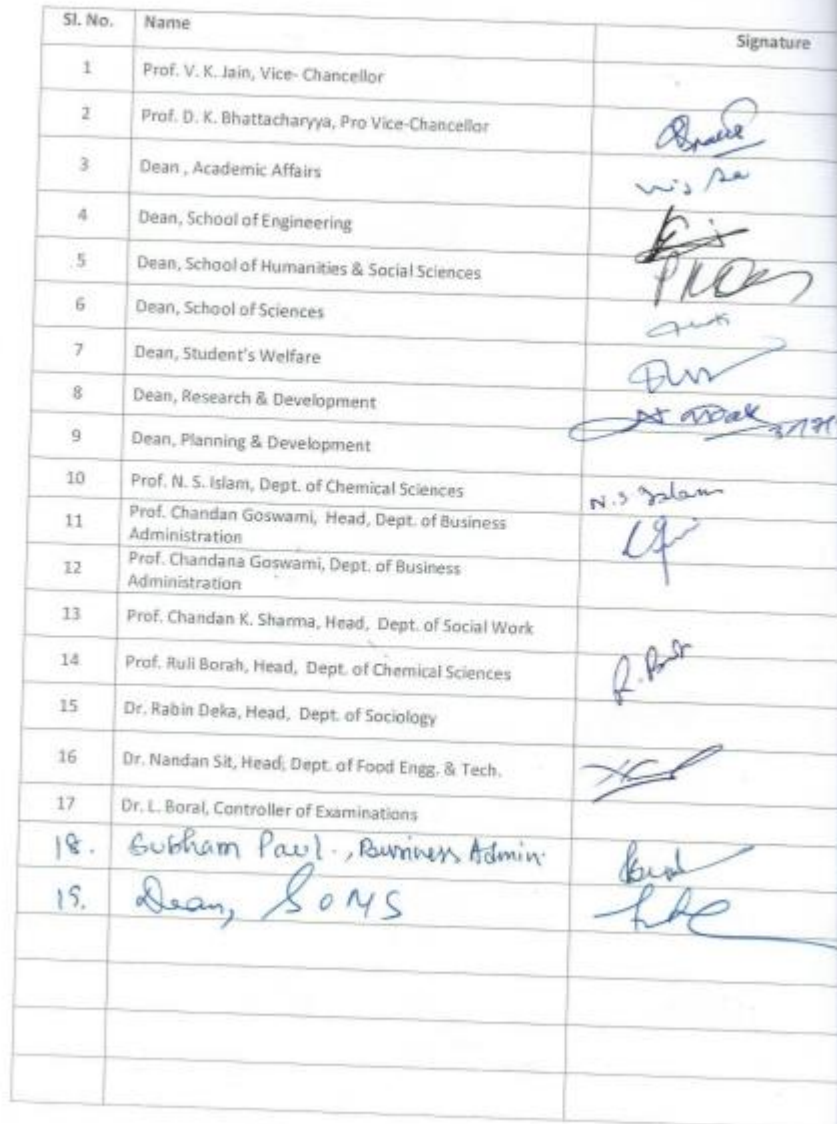 Sl. No. Name Signature
1 Prof. V. K. Jain, Vice- Chancellor
2 Prof. D. K. Bhattacharyya, Pro Vice-Chancellor
3 Dean , Academic Affairs
4 Dean, School of Engineering
5 Dean, School of Humanities & Social Sciences
6 Dean, School of Sciences
7 Dean, Student's Welfare
8 Dean, Research & Development
9 Dean, Planning & Development
10 Prof. N. S. Islam, Dept. of Chemical Sciences N.S Islam
11 Prof. Chandan Goswami, Head, Dept. of Business
Administration
12 Prof. Chandana Goswami, Dept. of Business
Administration
13 Prof. Chandan K. Sharma, Head, Dept. of Social Work
14 Prof. Ruli Borah, Head, Dept. of Chemical Sciences
15 Dr. Rabin Deka, Head, Dept. of Sociology
16 Dr. Nandan Sit, Head, Dept. of Food Engg. & Tech.
17 Dr. L. Boral, Controller of Examinations
18. Subham Paul., Business Admin.
19. Dean, SoMS